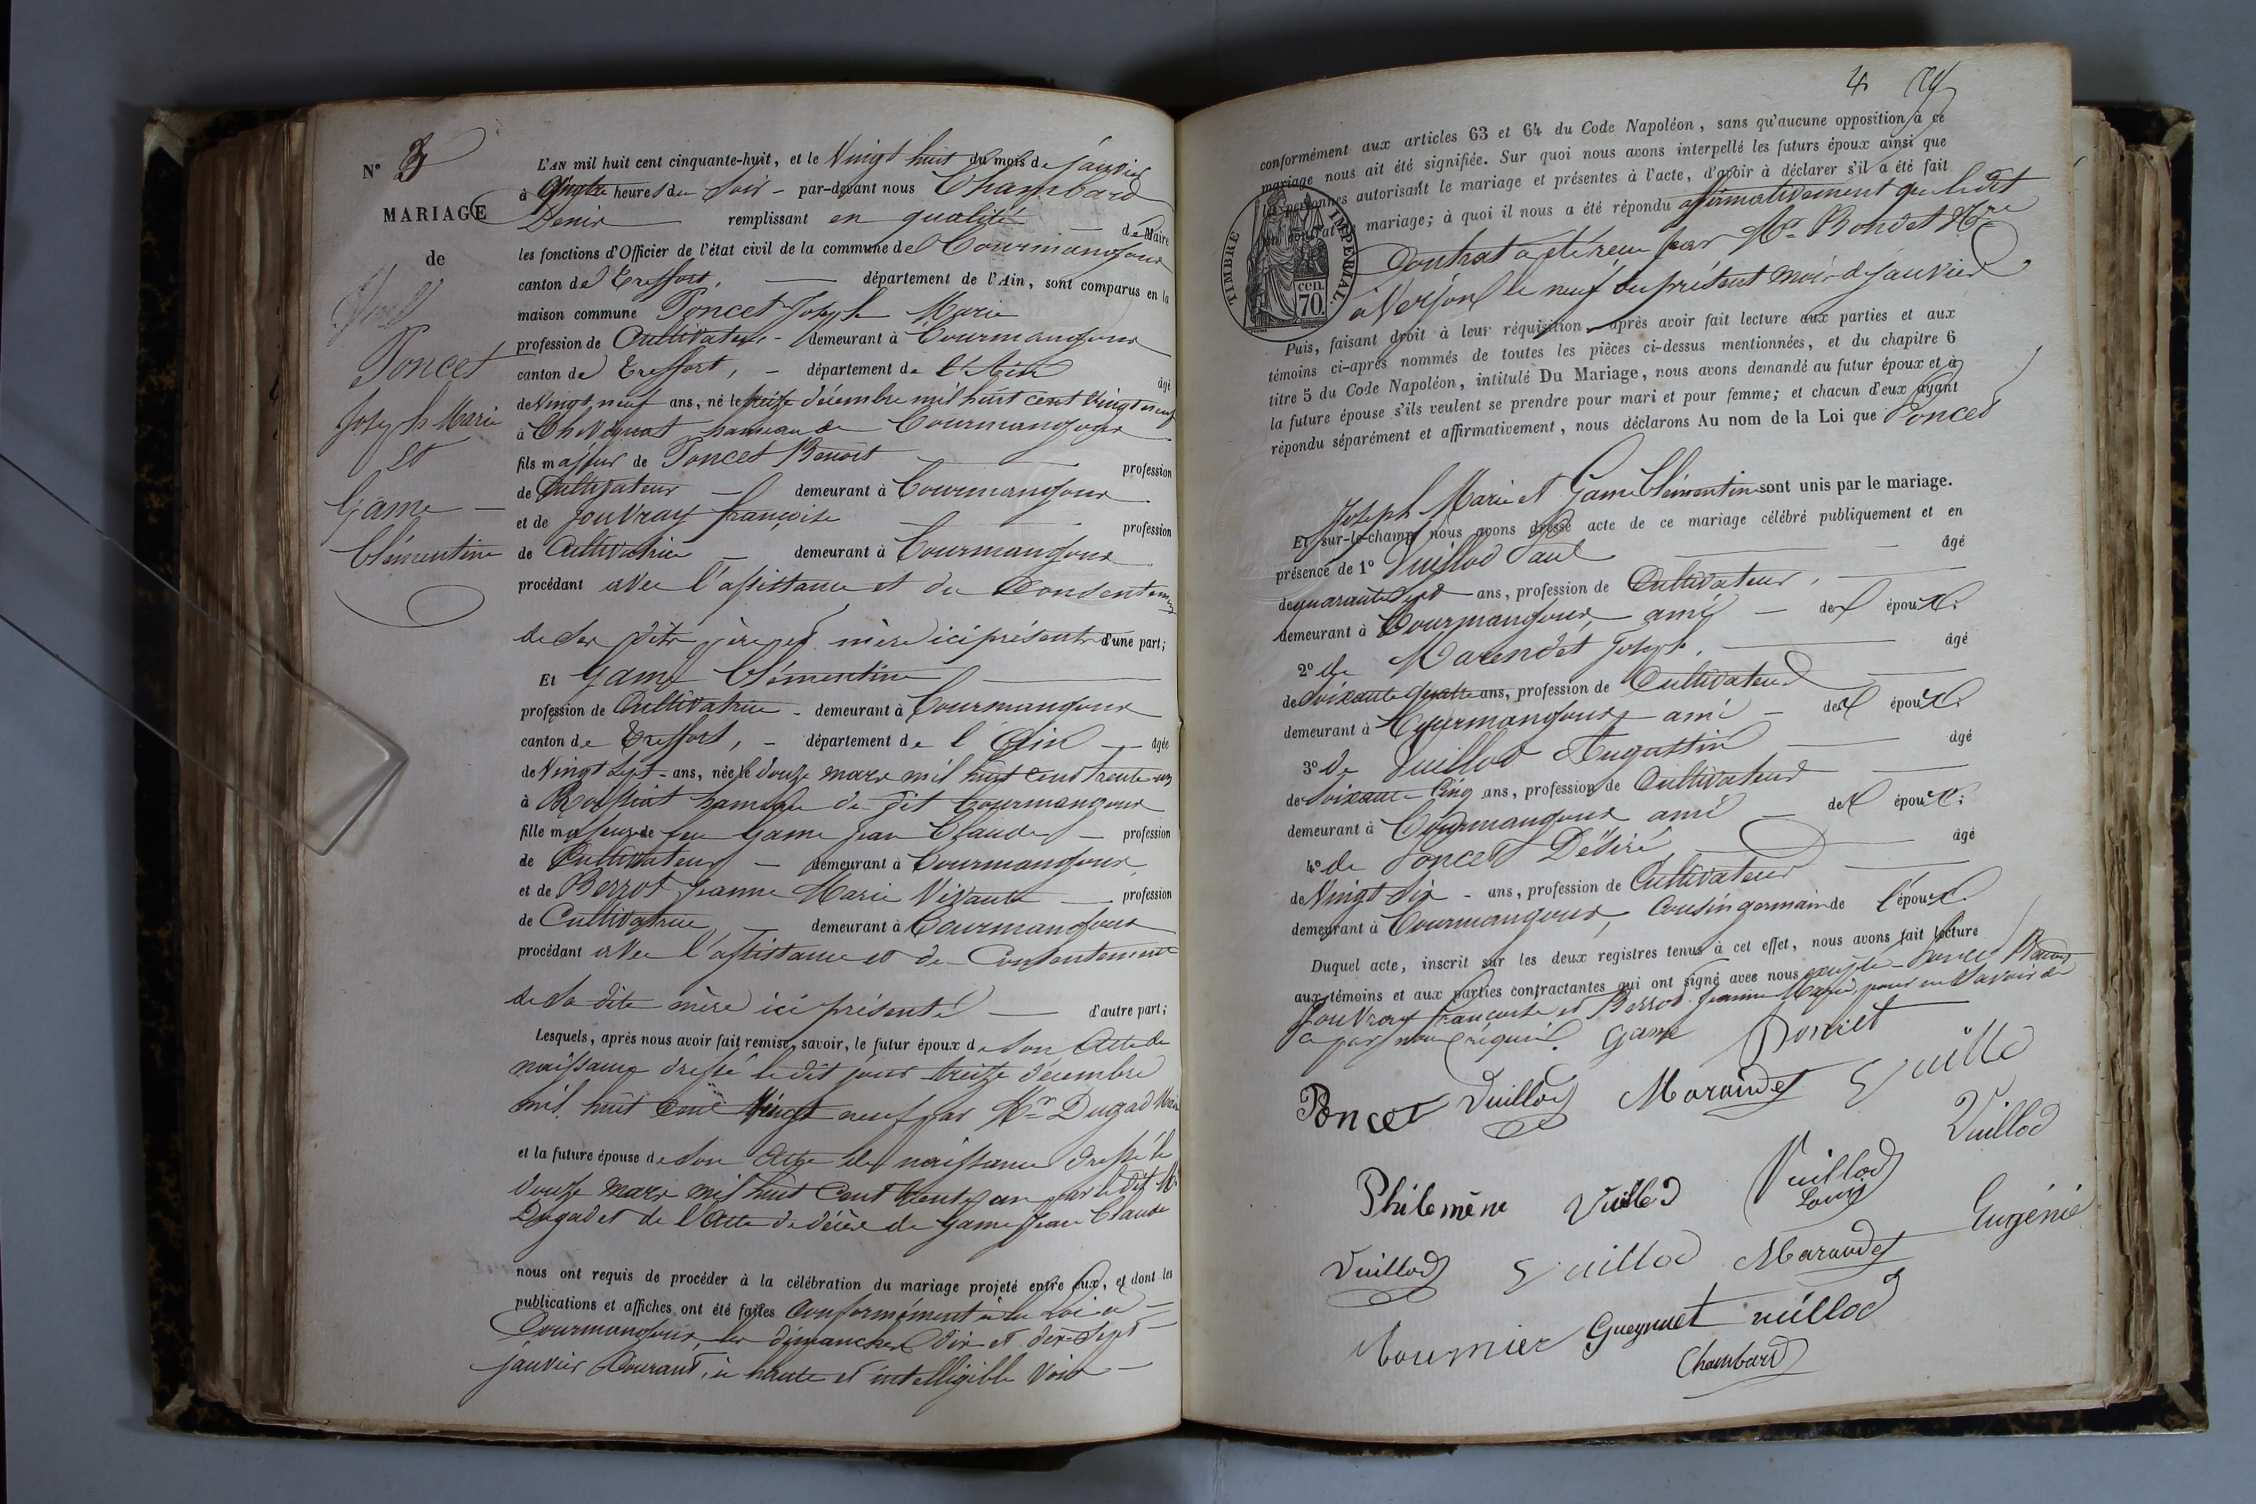 N° 3
MARIAGE
de
Poncet
Joseph Marie
et
Game
Clémentine
L'AN mil huit cent cinquante-huit, et le Vingt huit du mois de janvier
à quatre heures du soir - par-devant nous Chambard
Denis remplissant en qualité de Maire
les fonctions d'Officier de l'état civil de la commune de Courmangoux
canton de Treffort, département de l'Ain, sont comparus en la
maison commune Poncet Joseph Marie
profession de Cultivateur - demeurant à Courmangoux
canton de Treffort, - département de l'Ain âgé
de Vingt neuf ans, né le treize décembre mil huit cent vingt neuf
à Chevignat hameau de Courmangoux
fils majeur de Poncet Benoit profession
de Cultivateur - demeurant à Courmangoux
et de Jouvray françoise profession
de Cultivatrice - demeurant à Courmangoux
procédant avec l'assistance et du Consentement
de ses dits père et mère ici présents d'une part;
Et Game Clémentine
profession de Cultivatrice - demeurant à Courmangoux
canton de Treffort, - département de l'Ain - âgée
de Vingt sept - ans, née le douze mars mil huit cent trente un
à Roissiat hameau de dit Courmangoux
fille majeure de feu Game Jean Claude - profession
de Cultivateur - demeurant à Courmangoux
et de Berrot Jeanne Marie Vivante profession
de Cultivatrice - demeurant à Courmangoux
procédant avec l'assistance et du Consentement
de Sa dite mère ici présente d'autre part;
Lesquels, après nous avoir fait remise, savoir, le futur époux de son acte de
naissance dressé le dit jour treize décembre
mil huit cent vingt neuf par Mr Dugad Maire
et la future épouse de son acte de naissance dressé le
douze mars mil huit cent trente un par le dit Mr
Dugad et de l'acte de décès de Game Jean Claude
nous ont requis de procéder à la célébration du mariage projeté entre eux, et dont les
publications et affiches ont été faites conformément à la Loi à
Courmangoux, les dimanches dix et dix-Sept
janvier Courant, à haute et intelligible Voix
4
conformément aux articles 63 et 64 du Code Napoléon, sans qu'aucune opposition à ce
mariage nous ait été signifiée. Sur quoi nous avons interpellé les futurs époux ainsi que
les personnes autorisant le mariage et présentes à l'acte, d'avoir à déclarer s'il a été fait
un contrat de mariage; à quoi il nous a été répondu affirmativement que le dit
Contrat a été reçu par Me Bondet Nre
à Verjon le neuf du présent mois de janvier
TIMBRE IMPÉRIAL.
70 cen.
Puis, faisant droit à leur réquisition, après avoir fait lecture aux parties et aux
témoins ci-après nommés de toutes les pièces ci-dessus mentionnées, et du chapitre 6
titre 5 du Code Napoléon, intitulé Du Mariage, nous avons demandé au futur époux et à
la future épouse s'ils veulent se prendre pour mari et pour femme; et chacun d'eux ayant
répondu séparément et affirmativement, nous déclarons Au nom de la Loi que Poncet
Joseph Marie et Game Clémentine sont unis par le mariage.
Et sur-le-champ nous avons dressé acte de ce mariage célébré publiquement et en
présence de 1° Vuillod Paul âgé
de quarante sept ans, profession de Cultivateur,
demeurant à Courmangoux, ami - des époux;
2° de Marendet Joseph, âgé
de Soixante quatre ans, profession de Cultivateur
demeurant à Courmangoux, ami - des époux;
3° de Vuillod Augustin âgé
de Soixante Cinq ans, profession de Cultivateur
demeurant à Courmangoux ami - des époux;
4° de Poncet Désiré âgé
de Vingt Six - ans, profession de Cultivateur
demeurant à Courmangoux, Cousin germain de l'époux.
Duquel acte, inscrit sur les deux registres tenus à cet effet, nous avons fait lecture
aux témoins et aux parties contractantes qui ont signé avec nous excepté Poncet Benoit
Jouvray françoise et Berrot Jeanne Marie, pour ne Savoir de
ce par nous requis. Game Poncet
Poncet Vuillod Marandet Vuillo
Vuillod
Philomène Vuillod Vuillod
Louis
Eugénie
Vuillod Vuillod Marandet
Tournier Gueynuet vuillod
Chambard